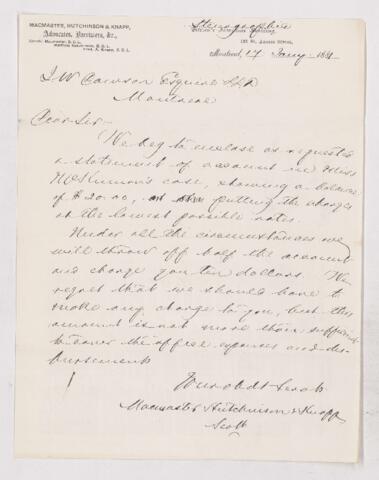 MACMASTER, HUTCHINSON & KNAPP,
Advocates, Barristers, &c.,
Stenographic
Montreal, 17 Jany 1881
J W Dawson Esquire LLD
Montreal
Dear Sir
We beg to enclose as requested
a statement of account in Miss
case, showing a balance
of $20.00, putting the charges
at the lowest possible rates.
Under all the circumstances we
will throw off half the account
and charge you ten dollars. We
regret that we should have to
make any charge to you, but this
amount is not more than sufficient
to cover the office expenses and dis-
bursements
Your obdt Servts
Macmaster Hutchinson & Knapp